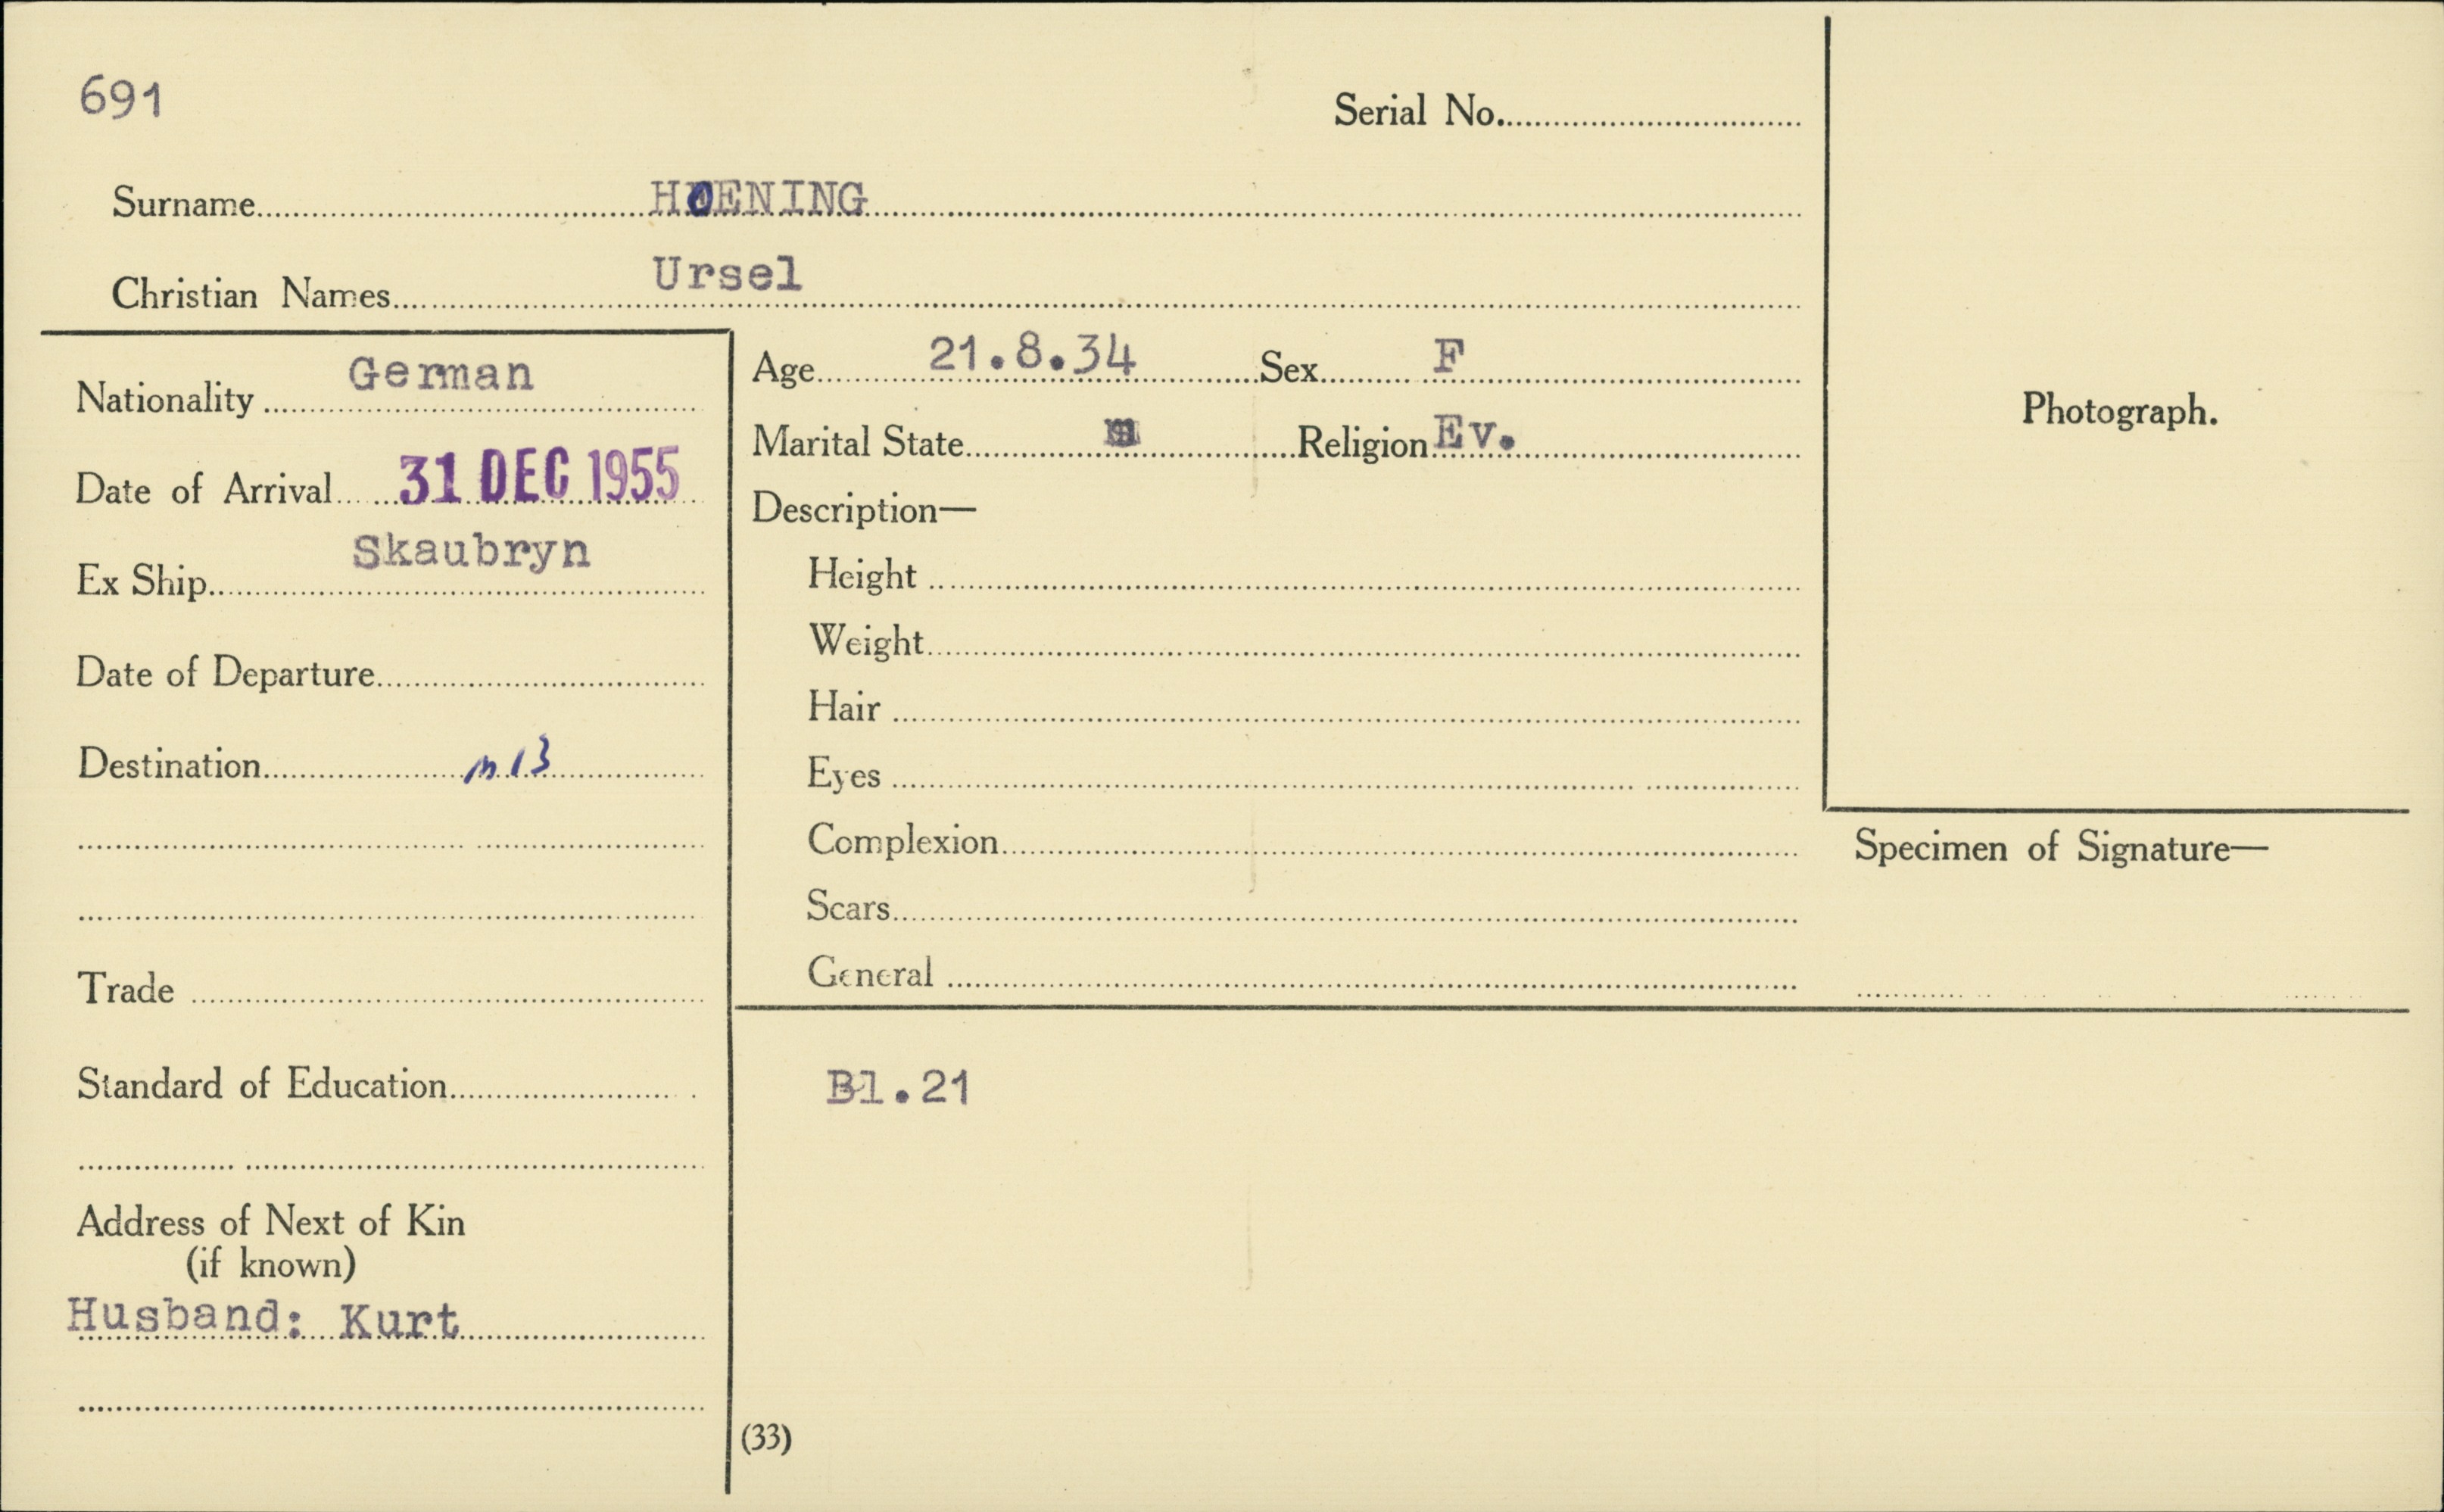 691
Serial No.
Surname HOENING
Christian Names Ursel
Nationality German
Date of Arrival 31 DEC 1955
Ex Ship Skaubryn
Date of Departure
Destination m 13
Trade
Standard of Education
Address of Next of Kin
(if known)
Husband: Kurt
Age 21.8.34 Sex F
Marital State m Religion Ev.
Description—
Height
Weight
Hair
Eyes
Complexion
Scars
General
Photograph.
Specimen of Signature—
Bl.21
(33)